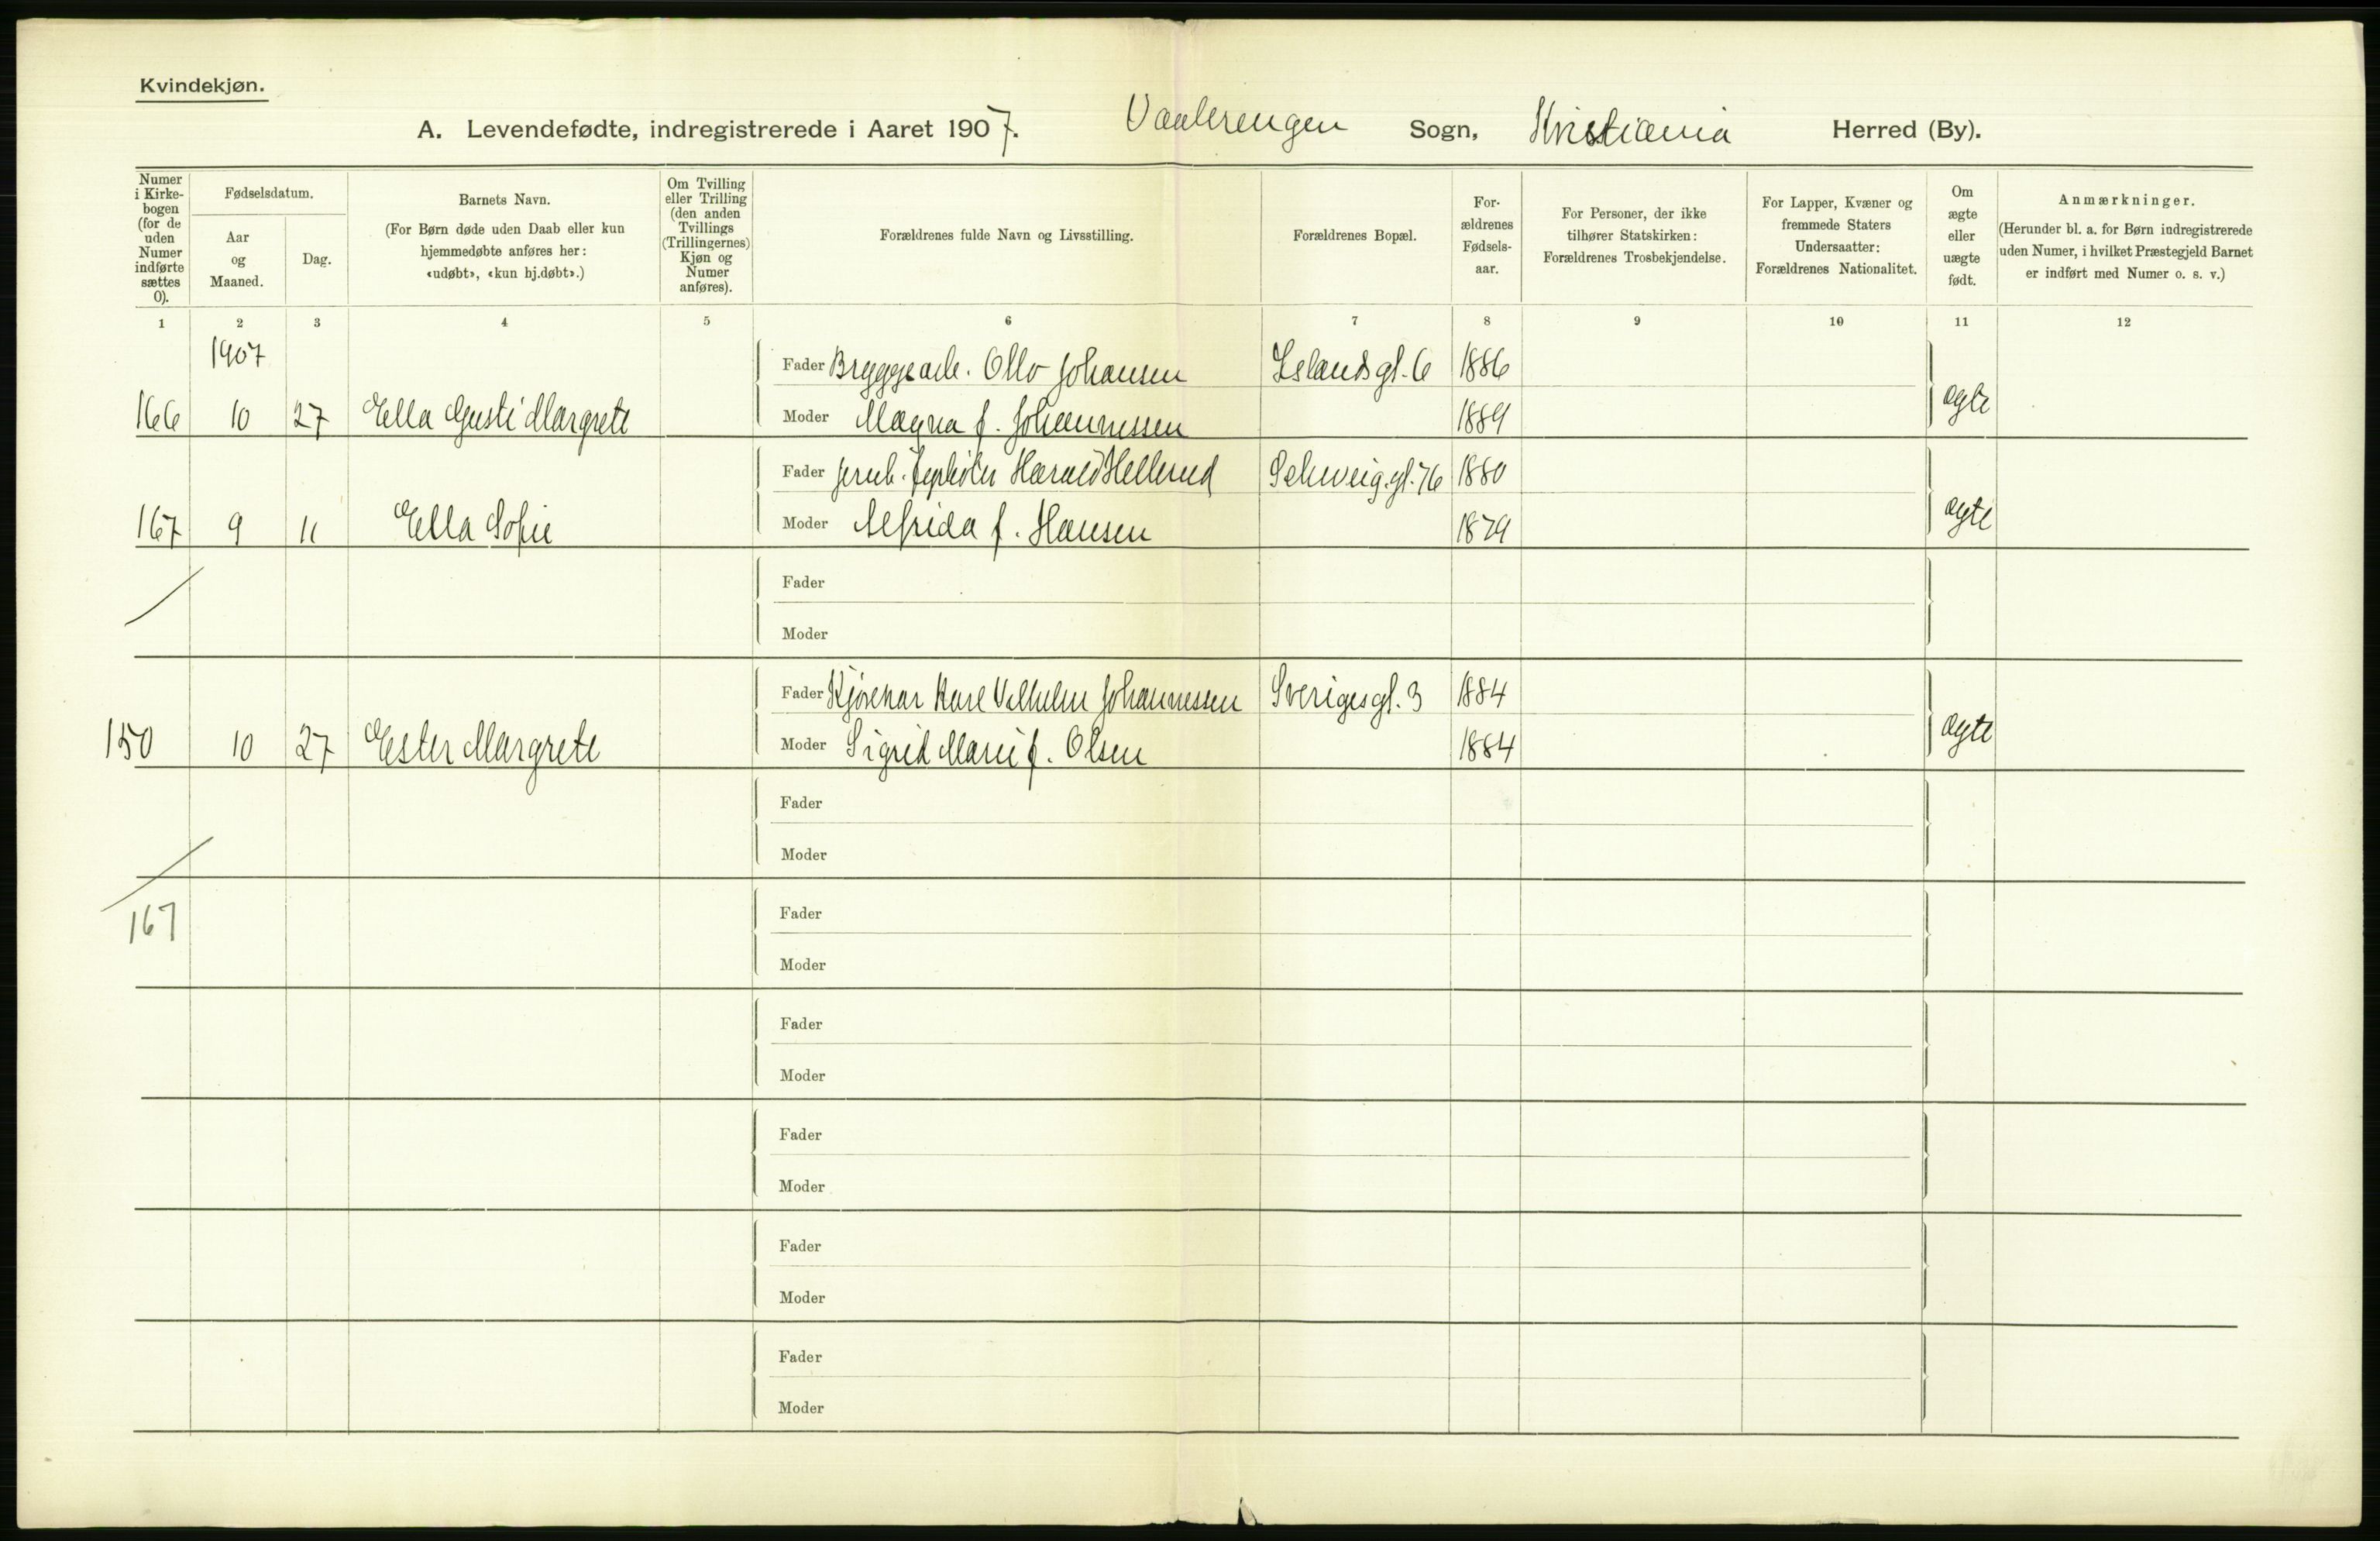 Kvindekjøn.
A. Levendefødte, indregistrerede i Aaret 1907. Vaalerengen Sogn, Kristiania Herred (By).
Numer i Kirke-bogen (for de uden Numer indførte sættes 0).
Fødselsdatum.
Aar og Maaned.
Dag.
Barnets Navn.
(For Børn døde uden Daab eller kun hjemmedøbte anføres her: «udøbt», «kun hj.døbt».)
Om Tvilling eller Trilling (den anden Tvillings (Trillingernes) Kjøn og Numer anføres).
Forældrenes fulde Navn og Livsstilling.
Forældrenes Bopæl.
For-ældrenes Fødsels-aar.
For Personer, der ikke tilhører Statskirken: Forældrenes Trosbekjendelse.
For Lapper, Kvæner og fremmede Staters Undersaatter: Forældrenes Nationalitet.
Om ægte eller uægte født.
Anmærkninger.
(Herunder bl. a. for Børn indregistrerede uden Numer, i hvilket Præstegjeld Barnet er indført med Numer o. s. v.)
1 2 3 4 5 6 7 8 9 10 11 12
1907
Fader Bryggearb. Otto Johansen Islandsgt. 6 1886
166 10 27 Ella Gusti Margrete Moder Magna f. Johannessen 1889 ægte
Fader Harald Hellerud Schweig.gt. 76 1880
167 9 11 Ella Sofie Moder Alfrida f. Hansen 1879 ægte
Fader
Moder
Fader Kjørekar Karl Vilhelm Johannessen Sverigesgt. 3 1884
150 10 27 Ester Margrete Moder Sigrid Marie f. Olsen 1884 ægte
Fader
Moder
167
Fader
Moder
Fader
Moder
Fader
Moder
Fader
Moder
Fader
Moder